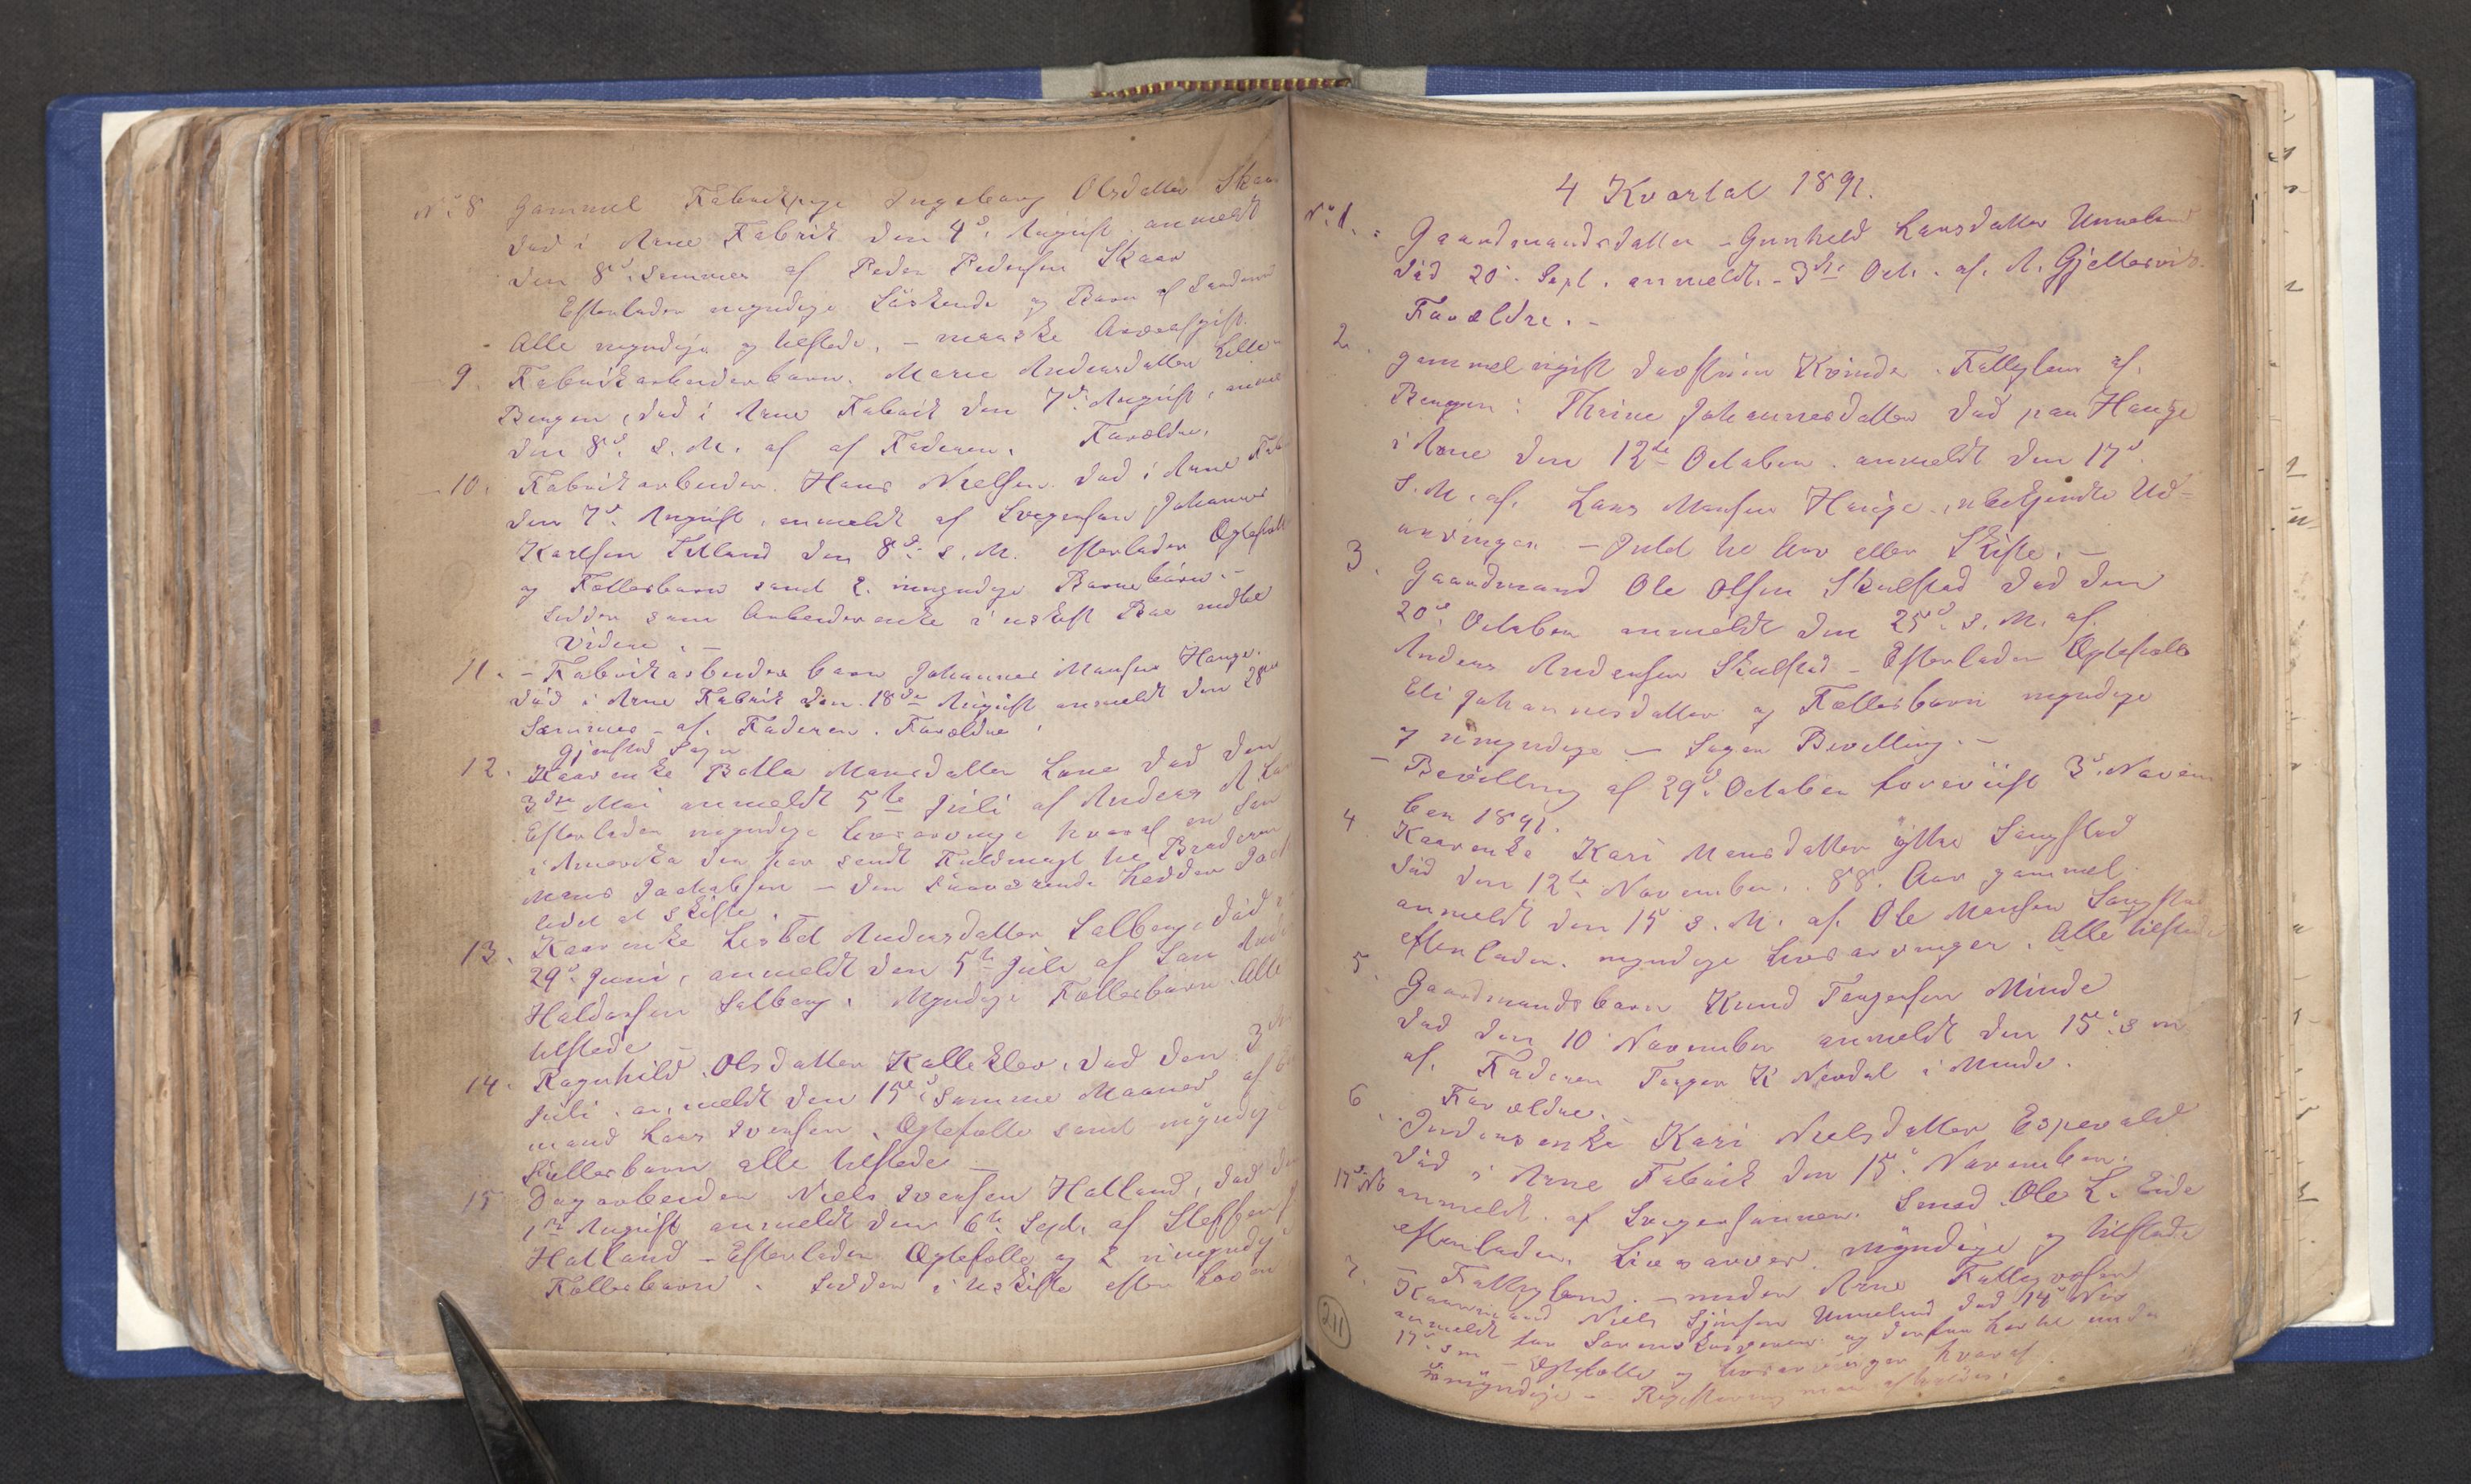 No 8 Gammel Fabrikpige Ingeborg Olsdatter Skaar
död i Arne Fabrik den 4de August anmeldt
den 8de sammes af Peder Pedersen Skaar
Efterlader myndige Söskende og Børn af
Alle myndige og tilstede, - maaske Arveafgift.
9. Fabrikarbeiderbarn Marie Andersdatter
Bergen, död i Arne Fabrik den 7de August,
den 8de s. M. af af Faderen. Forældre.
10. Fabrikarbeider Hans Nielsen död i Arne Fab
den 7de August, anmeldt af Svigersøn Johannes
Karlsen den 8de s. M. efterlader Ægtefælle
og Fællesbørn samt 2 umyndige Barnebörn. -
Sidder som Arbeiderenke i uskift Bo indtil
Videre. -
11. - Fabrikarbeider barn Johannes Monsen Hauge.
död i Arne Fabrik den 18de August anmeldt den 28de
Sammes - af Faderen. Forældre.
12. Kaarenke Monsdatter Lone död den
3die Mai anmeldt 5te Juli af Anders
Efterlader myndige Livsarvinge hvoraf en Søn
i Amerika der har sendt Fuldmagt til Broderen
Mons Jackobsen - den fraværende hedder
13. Kaarenke Andersdatter Solberg, död
29de Juni, anmeldt den 5te Juli af Søn
Haldorsen Solberg. Myndige Fællesbörn Alle
tilstede -
14. Ragnhild Olsdatter Kalleklev, död den 3
Juli anmeldt den 15de Samme Maaned af
mand Lars Iversen. Ægtefælle samt myndige
Fællesbørn alle tilstede -
15 Dagarbeider Niels Iversen Hatland, död den
1ste August anmeldt den 6te Sept. af Steffen
Hatland - Efterlader Ægtefælle og 2 umyndige
Fællesbørn. Sidder i Uskifte efter Loven
4 Kvartal 1891.
No 1. Gaardmandsdatter - Gunhild Larsdatter Unneland
död 20. Sept. anmeldt - 3die Oct. af A. Gjellesvik.
Forældre. -
2. gammel ugift Kvinde Fattiglem af
Bergen: Thrine Johannesdatter död paa Hauge
i Arne den 12te October anmeldt den 17de
s. M. af Lars Monsen Hauge, ubekjendte Ud=
arvinger - Intet til Arv eller Skifte. -
3. Gaardmand Ole Olsen Skulstad död den
20de October anmeldt den 25de s. M. af
Anders Andersen Skulstad - Efterlader Ægtefælle
Eli Johannesdatter og Fællesbørn myndige
og umyndige - Søger Bevilling. -
- Bevilling af 29de October foreviist 3de Novem
ber 1891.
4. Kaarenke Kari Monsdatter ÿttre Songstad
död den 12te November. 88 Aar gammel
anmeldt den 15 s. M. af Ole Monsen Songstad
efterlader myndige Livsarvinger. Alle tilstede
5. Gaardmandsbarn Knud Torgersen Minde
död den 10 November anmeldt den 15de s m
af Faderen Torger K Nerdal i Minde.
Forældre.
6. Inderstenke Kari Nielsdatter Espevold
död i Arne Fabrik den 15de November.
17de No anmeldt af Svigersønnen Smed Ole L. Eide
efterlader Livsarver myndige og tilstede
- Fattiglem - under Arne Fattigvæsen
7. Kaarmand Niels Unneland död 14de Nov
anmeldt for Sorenskriveren og
17de s m - Ægtefælle og Livsarvinger hvoraf
umyndige - Registrering maa afholdes.
211